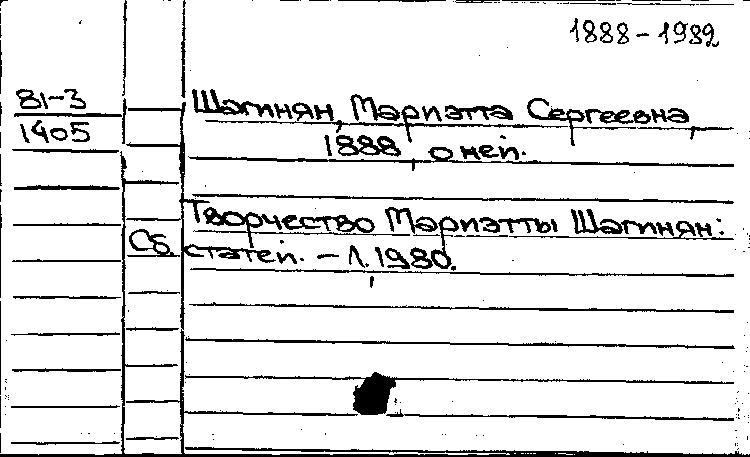 1888-1982
81-3
1405
Шагинян, Мариэтта Сергеевна,
1888, о ней.
Творчество Мариэтты Шагинян:
Сб. статей. - Л. 1980.